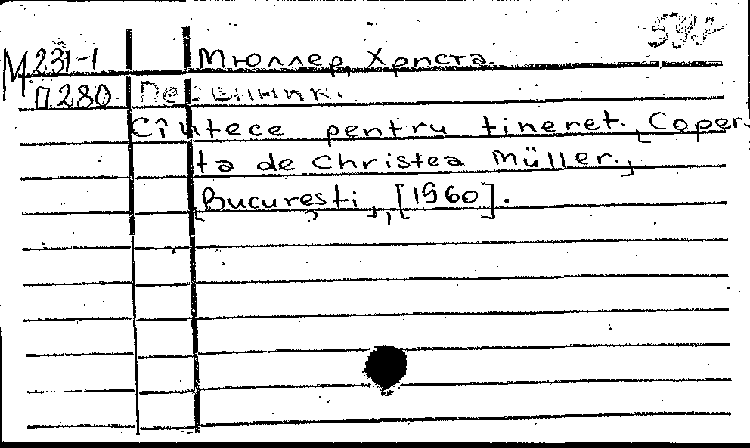 М 231-1 Мюллер, Христа.
П280 Песенник.
Cîntece pentru tineret. [Coper-
ta de Christea Müller.]
București, [1960].